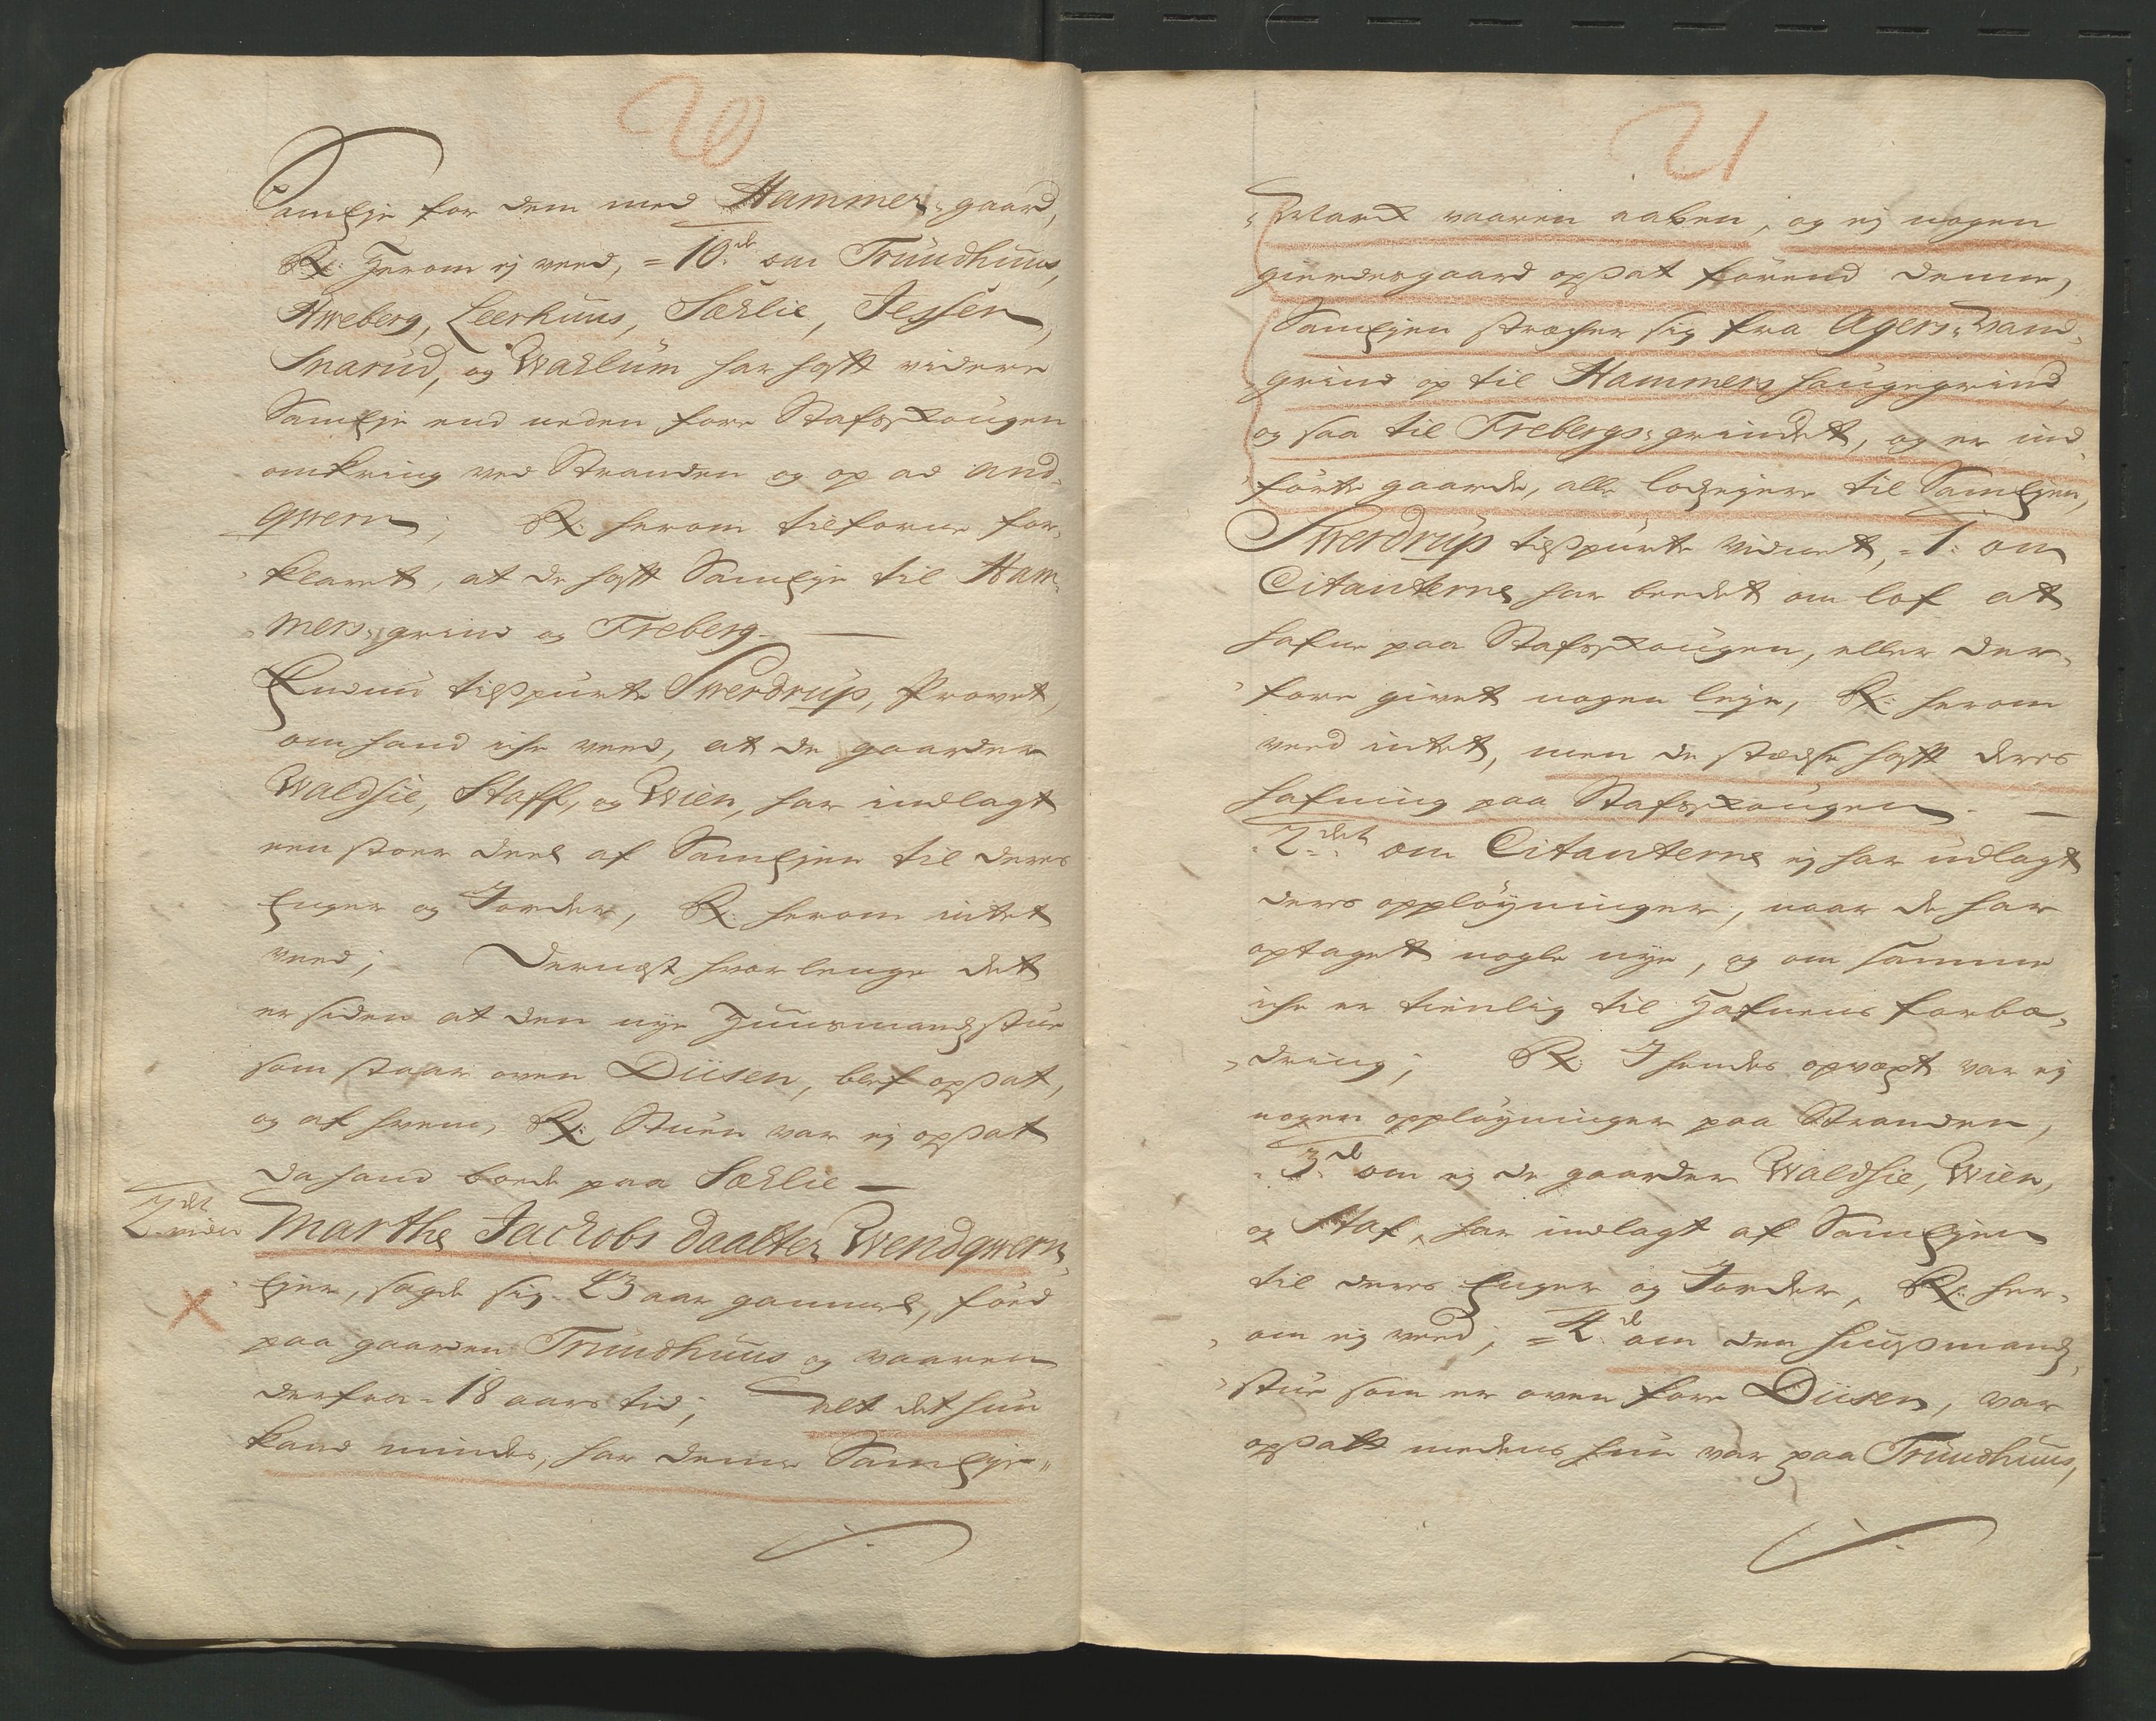 20
Sameje for dem med Hammer„gaard,
Rx: herom ej veed, = 10de om Truudhuus,
Hweberg, Leerhuus, Sæhlie, Jessen,
Snarud, og Wahlum har haft videre
Sameje end neden fore Stafsskougen
omkring ved Stranden og op ad And„
qwern; Rx: herom tilforne for„
klaret, at de haft Sameje til Ham„
mers„grind og Freberg. —
Endnu tilspurte Swerdrup, Provet,
om hand iche veed, at de gaarder
Waldsie, Staff, og Wien, har indlagt
een stoer deel af Samejer til deres
Enger og Jorder, Rx: herom intet
veed; Dernæst hvor lenge det
er siden at den nye Huusmandsstue
som staar oven Diisen, blef opsat,
og af hvem, Rx: Stuen var ej opsat
da hand boede paa Sæhlie —
2det vidne
Marthe Jachobs daatter Wendqwern„
ejer, sagde sig 43 aar gammel, föed
paa gaarden Truudhuus og vaaren
derfra = 18 aars tid; alt det hun
kand mindes, har denne Sameje„
21
„Mark vaaren aaben, og ej nogen
gierdesgaard opsat förend denne,
Samejen stræcher sig fra Agers„Vand„
grind op til Hammers haugegrind,
og saa til Frebergs„grindet, og er ind„
förte gaarde, alle lodzejere til Samejen,
Swerdrup tilspurte vidnet, = 1: om
Citanterne har beedet om lof at
hafne paa Stafsskougen, eller der„
fore givet nogen leje, Rx: herom
veed intet, men de stædse haft deres
hafning paa Stafsskougen. —
2det om Citanterne ej har udlagt
deres opplöyninger, naar de har
optaget nogle nye, og om samme
iche er tienlig til Hafnens forbæ„
dring; Rx: J hendes opvæxt var ej
nogen opplöyninger paa Stranden,
3de om ej de gaarder Waldsie, Wien,
og Staf, har indlagt af Samejen
til deres Enger og Jorder, Rx: her„
om ej veed; = 4de om den huusmands„
stue som er oven fore Diisen, var
opsatt medens hun var paa Truudhuus,